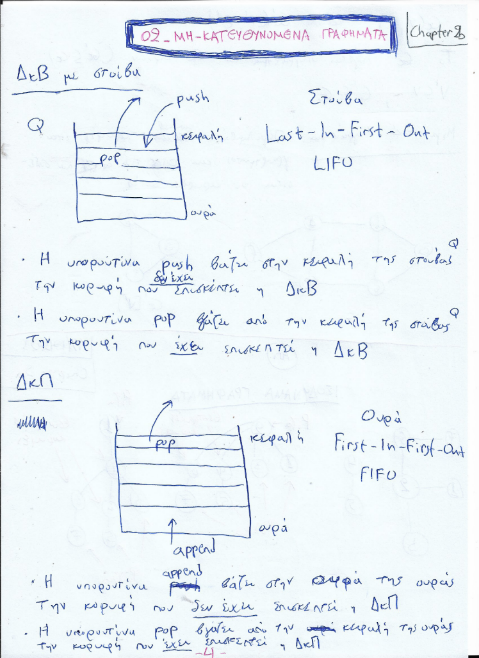 02_ΜΗ-ΚΑΤΕΥΘΥΝΟΜΕΝΑ ΓΡΑΦΗΜΑΤΑ
Chapter 2b
ΔκΒ με στοίβα
push
Στοίβα
Q
κεφαλή
Last-In-First-Out
pop
LIFO
ουρά
· Η υπορουτίνα push βάζει στην κεφαλή της στοίβας Q
την κορυφή που δεν έχει επισκεπτεί η ΔκΒ
· Η υπορουτίνα pop βγάζει από την κεφαλή της στοίβας Q
την κορυφή που έχει επισκεπτεί η ΔκΒ
ΔκΠ
Ουρά
pop
κεφαλή
First-In-First-Out
FIFO
ουρά
append
· Η υπορουτίνα append βάζει στην ουρά της ουράς
την κορυφή που δεν έχει επισκεπτεί η ΔκΠ
· Η υπορουτίνα pop βγάζει από την κεφαλή της ουράς
την κορυφή που έχει επισκεπτεί η ΔκΠ
-4-